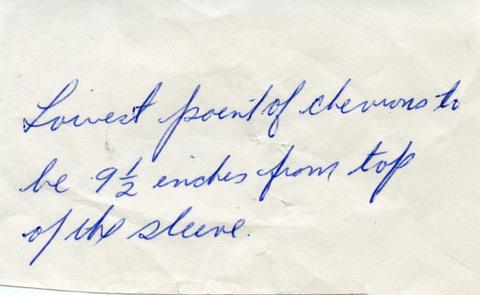 Lowest point of chevrons to
be 9½ inches from top
of the sleeve.